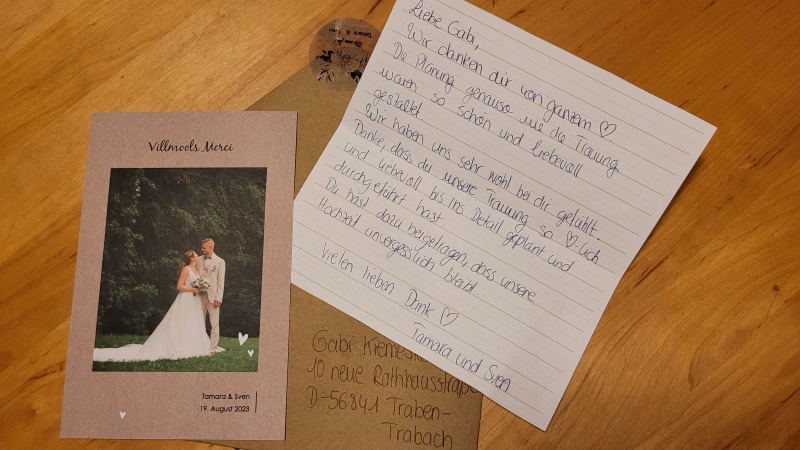 Villmools Merci
Tamara & Sven
19. August 2023
Liebe Gabi,
Wir danken dir von ganzem ♡
Die Planung genauso wie die Trauung
waren so schön und liebevoll
gestaltet.
Wir haben uns sehr wohl bei dir gefühlt.
Danke, dass du unsere Trauung so ♡-lich
und liebevoll bis ins Detail geplant und
durchgeführt hast
Du hast dazu beigetragen, dass unsere
Hochzeit unvergesslich bleibt.
Vielen lieben Dank ♡
Tamara und Sven
Gabi
10 neue Rathhausstraße
D-56841 Traben-
Trabach
Tamara & Sven